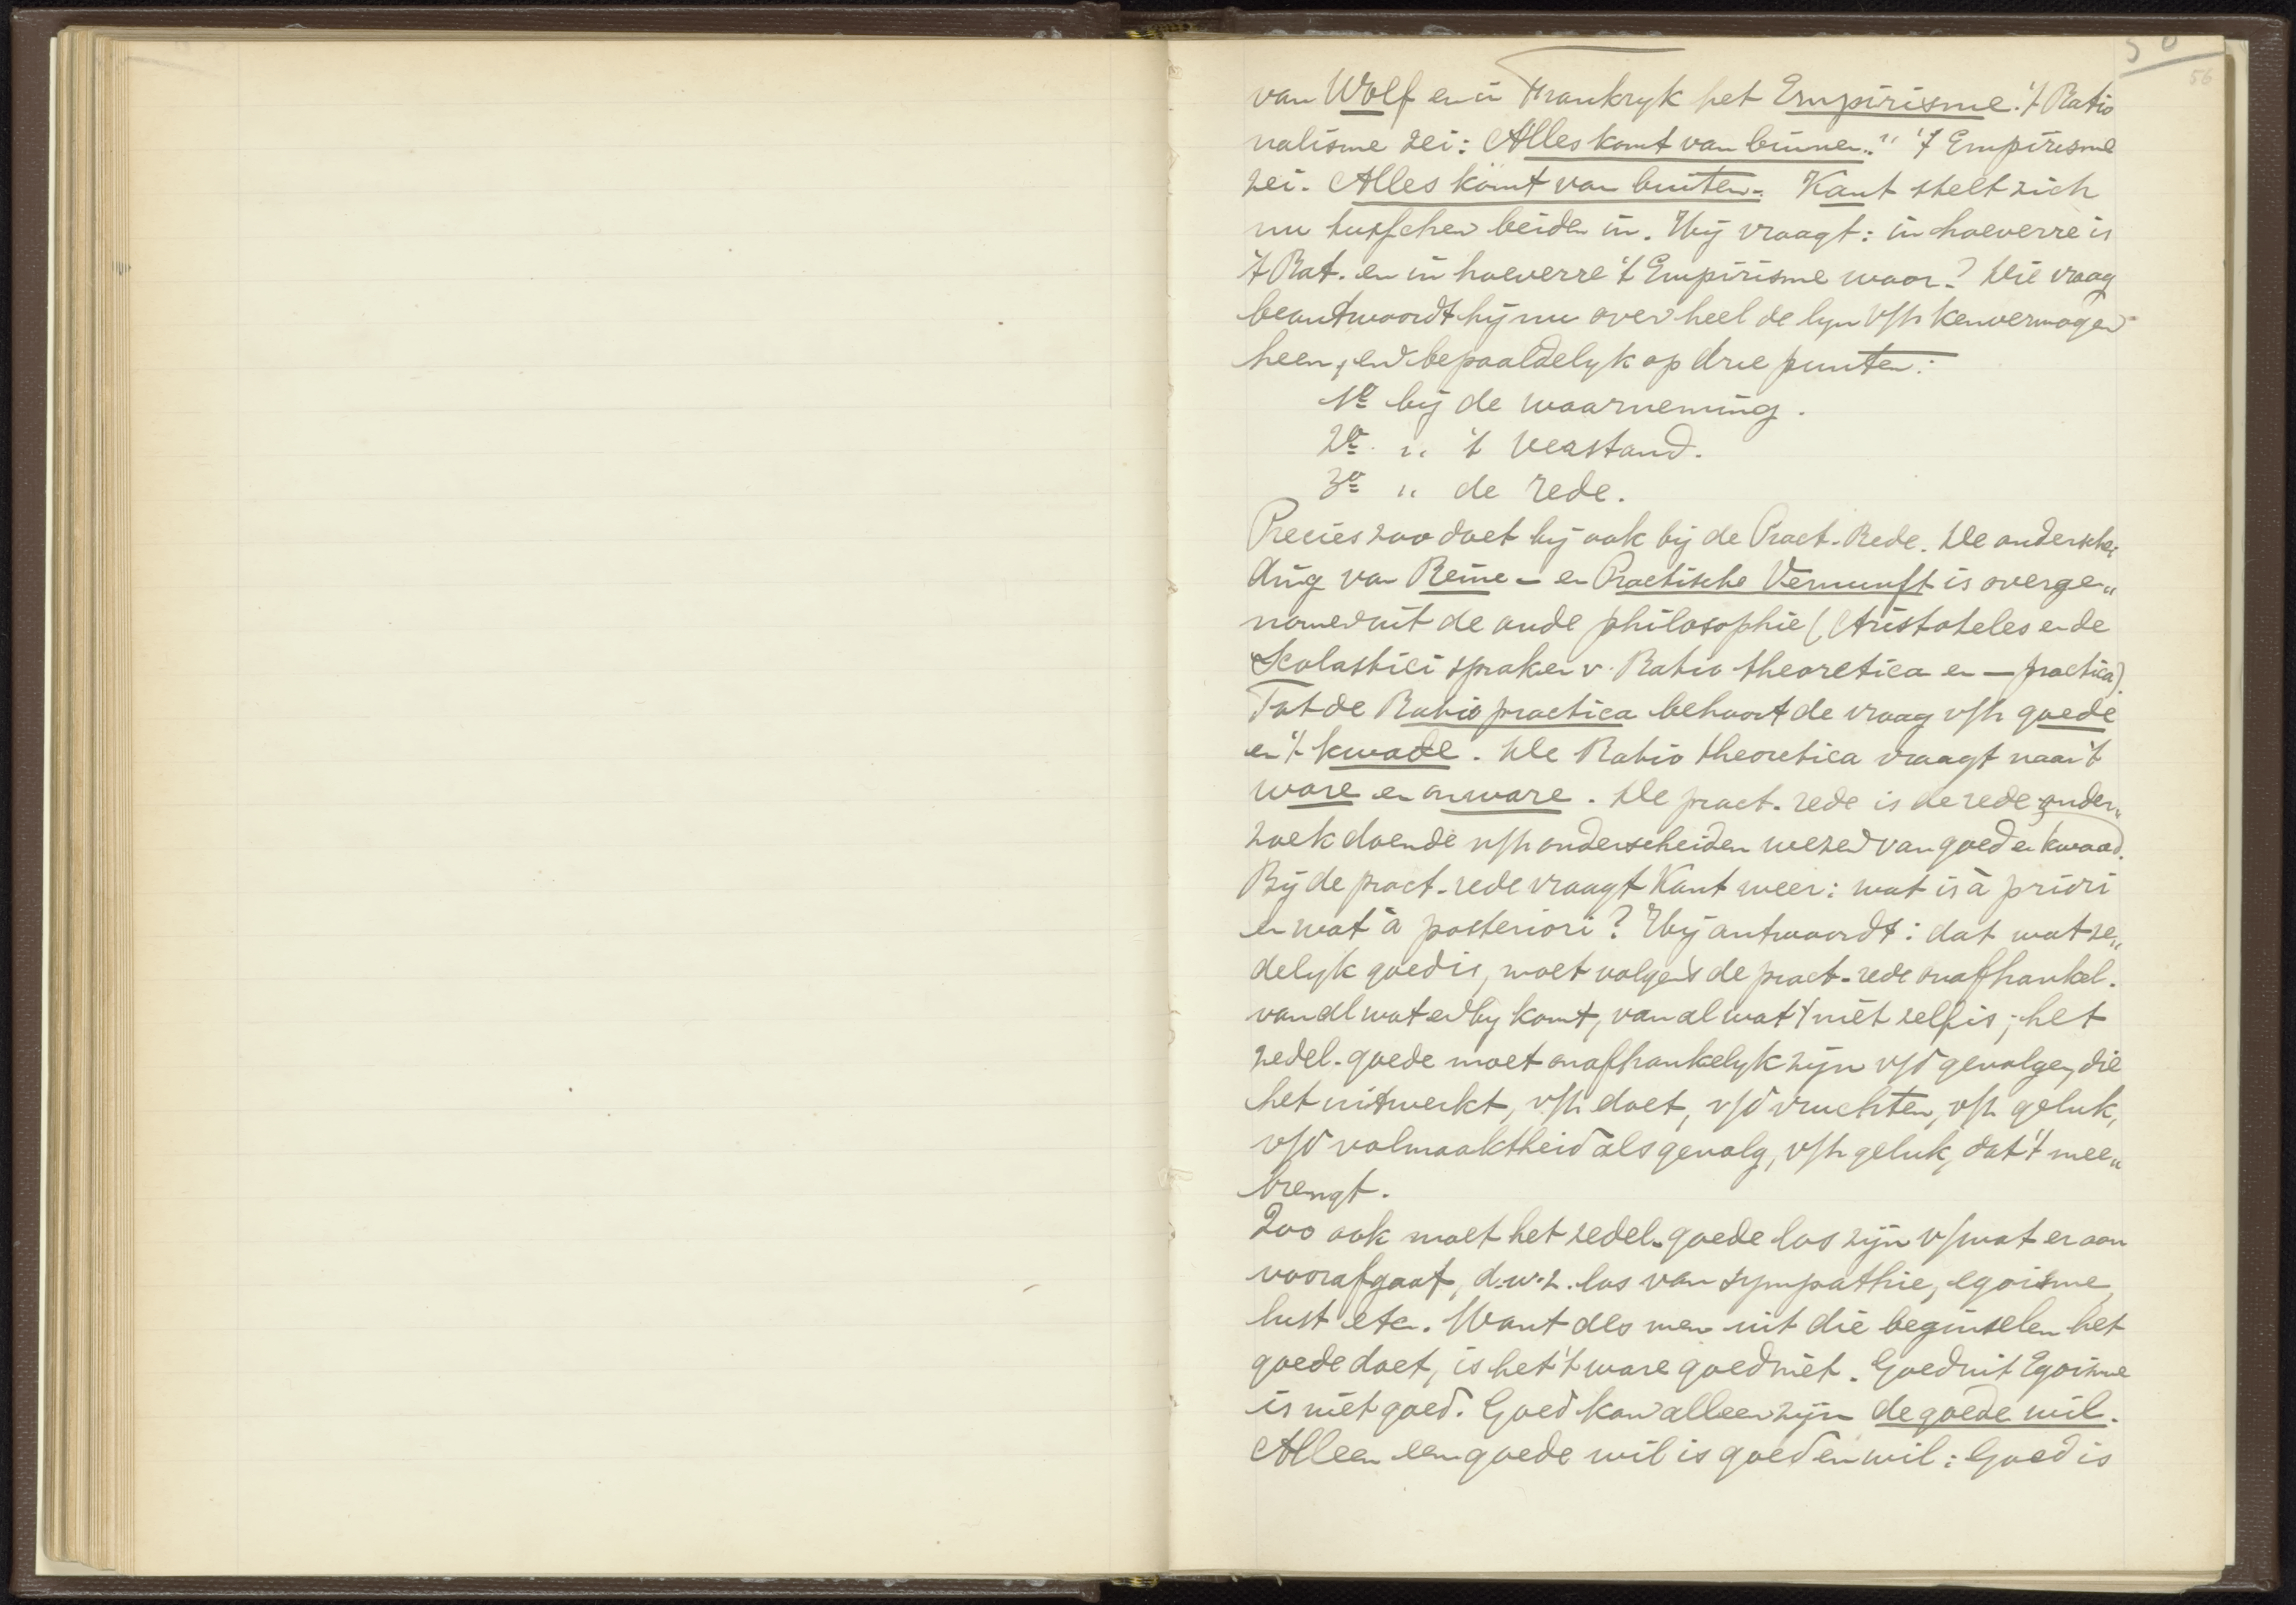 56
van Wolf en in Frankryk het Empirisme. 't Ratio
nalisme zei: Alles komt van binnen." 't Empirisme
zei. Alles komt van buiten. Kant stelt zich
nu tusschen beiden in. Hij vraagt: in hoeverre is
't Rat. en in hoeverre 't Empirisme waar? Die vraag
beantwoordt hij nu over heel de lyn v/h kenvermogen
heen, en bepaaldelyk op drie punten:
1º bij de waarneming.
2º „ 't verstand.
3º „ de rede.
Precies zoo doet hij ook bij de Pract. Rede. De onderschei
ding van Reine - en Practische Vernunft is overge„
nomen uit de oude philosophie (Aristoteles en de
Scolastici spraken v. Ratio theoretica en — practica).
Tot de Ratio practica behoort de vraag v/h goede
en 't kwade. De Ratio theoretica vraagt naar 't
ware en onware. De pract. rede is de rede onder„
zoek doende v/h onderscheiden wezen van goed en kwaad.
Bij de pract. rede vraagt Kant weer: wat is à priori
en wat à posteriori? Hij antwoordt: dat wat ze„
delyk goed is, moet volgens de pract. rede onafhankel.
van al wat er by komt, van al wat 't niet zelf is; het
zedel. goede moet onafhankelyk zijn v/d gevolgen, die
het uitwerkt, v/h doet, v/d vruchten, v/h geluk,
v/d volmaaktheid als gevolg, v/h geluk, dat 't mee„
brengt.
Zoo ook moet het zedel. goede los zijn v/wat er aan
voorafgaat, d.w.z. los van sympathie, egoisme,
lust etc. Want als men uit die beginselen het
goede doet, is het 't ware goed niet. Goed uit Egoisme
is niet goed. Goed kan alleen zijn de goede wil.
Alleen een goede wil is goed en wil: Goed is